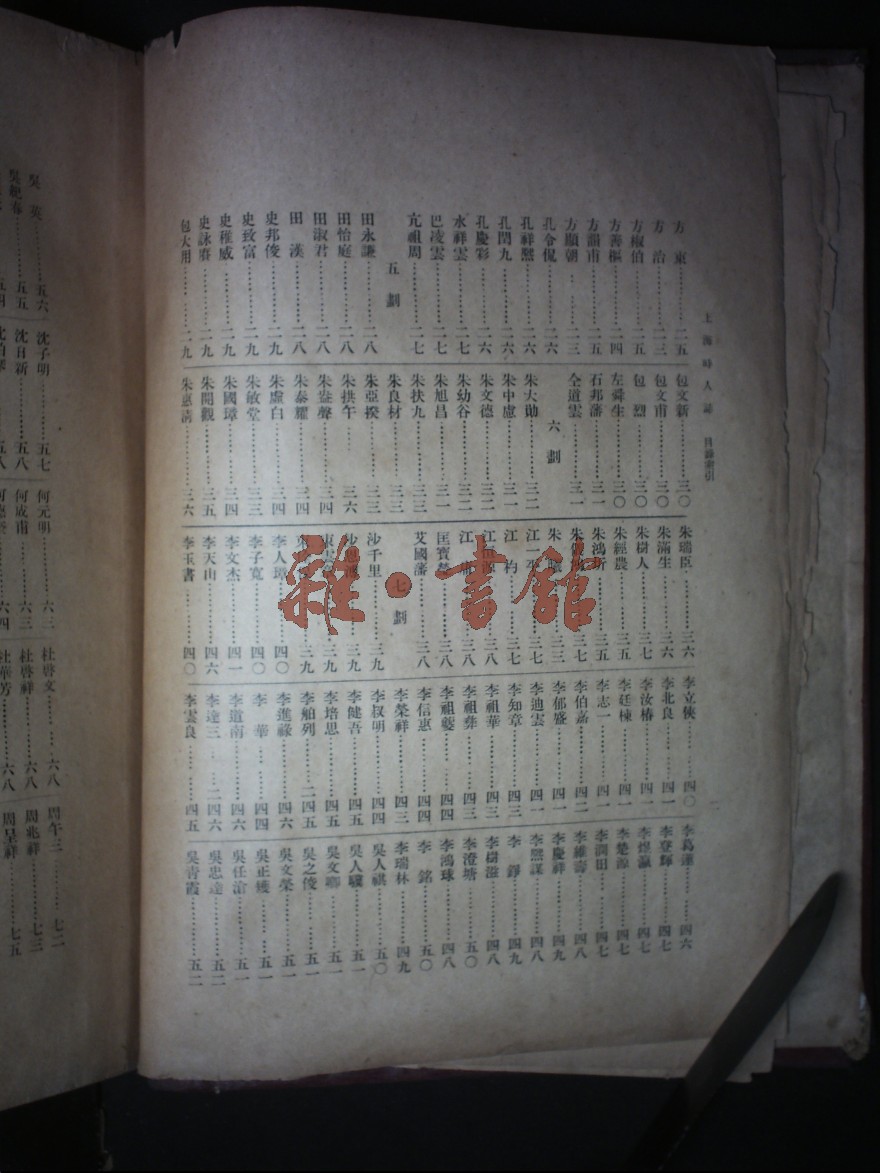 上海時人誌　目錄索引
方　東……二五
方　治……二三
方椒伯……二五
方善樞……二四
方韻甫……二五
方顯朝……二三
孔令侃……二六
孔祥熙……二六
孔閏九……二六
孔慶彩……二六
水祥雲……二七
巴凌雲……二七
亢祖周……二七
五　劃
田永謙……二八
田怡庭……二八
田淑君……二八
田　漢……二八
史邦俊……二九
史致富……二九
史稚威……二九
史詠賡……二九
包大用……二九
包文新……三〇
包文甫……三〇
包　烈……三〇
左舜生……三〇
石邦藩……三一
全道雲……三一
六　劃
朱大勛……三二
朱中慮……三一
朱文德……三二
朱幼谷……三二
朱旭昌……三一
朱扶九……三三
朱良材……三三
朱亞揆……三三
朱拱午……三六
朱益聲……三四
朱泰耀……三四
朱虛白……三四
朱敏堂……三三
朱國璋……三四
朱開觀……三五
朱惠清……三六
朱瑞臣……三六
朱滿生……三六
朱樹人……三七
朱經農……三五
朱鴻圻……三五
江一平……三七
江　杓……三七
匡寶瑩……三八
艾國藩……三八
七　劃
沙千里……三九
李人瓚……四〇
李子寬……四〇
李文杰……四一
李天山……四六
李玉書……四〇
李立俠……四〇
李北良……四一
李汝椿……四一
李廷棟……四一
李志一……四一
李伯嘉……四二
李郁盛……四一
李迪雲……四一
李知章……四三
李祖華……四三
李祖彝……四三
李祖夔……四四
李信惠……四四
李榮祥……四三
李叔明……四四
李健吾……四五
李培思……四五
李舶列……二四五
李進祿……四六
李　華……四四
李道南……四六
李達三……二四六
李雲良……四五
李葛蓮……四六
李登輝……四七
李煜瀛……四七
李楚源……四七
李潤田……四七
李維壽……四八
李慶祥……四九
李熙謀……四八
李　錚……四九
李樹滋……四八
李澄塘……五〇
李鴻球……四八
李　銘……五〇
李瑞林……四九
吳人祺……五〇
吳人驥……五一
吳文卿……五一
吳之俊……五一
吳文榮……五一
吳正矮……五一
吳任滄……五一
吳忠達……五二
吳青霞……五二
吳　英……五六
吳紀春……五五
沈子明……五七
沈日新……五八
何元明……六一
何成甫……六三
杜啓文……六八
杜啓祥……六八
杜華芳……六八
周午三……七二
周兆祥……七三
周呈祥……七五
雜·書館